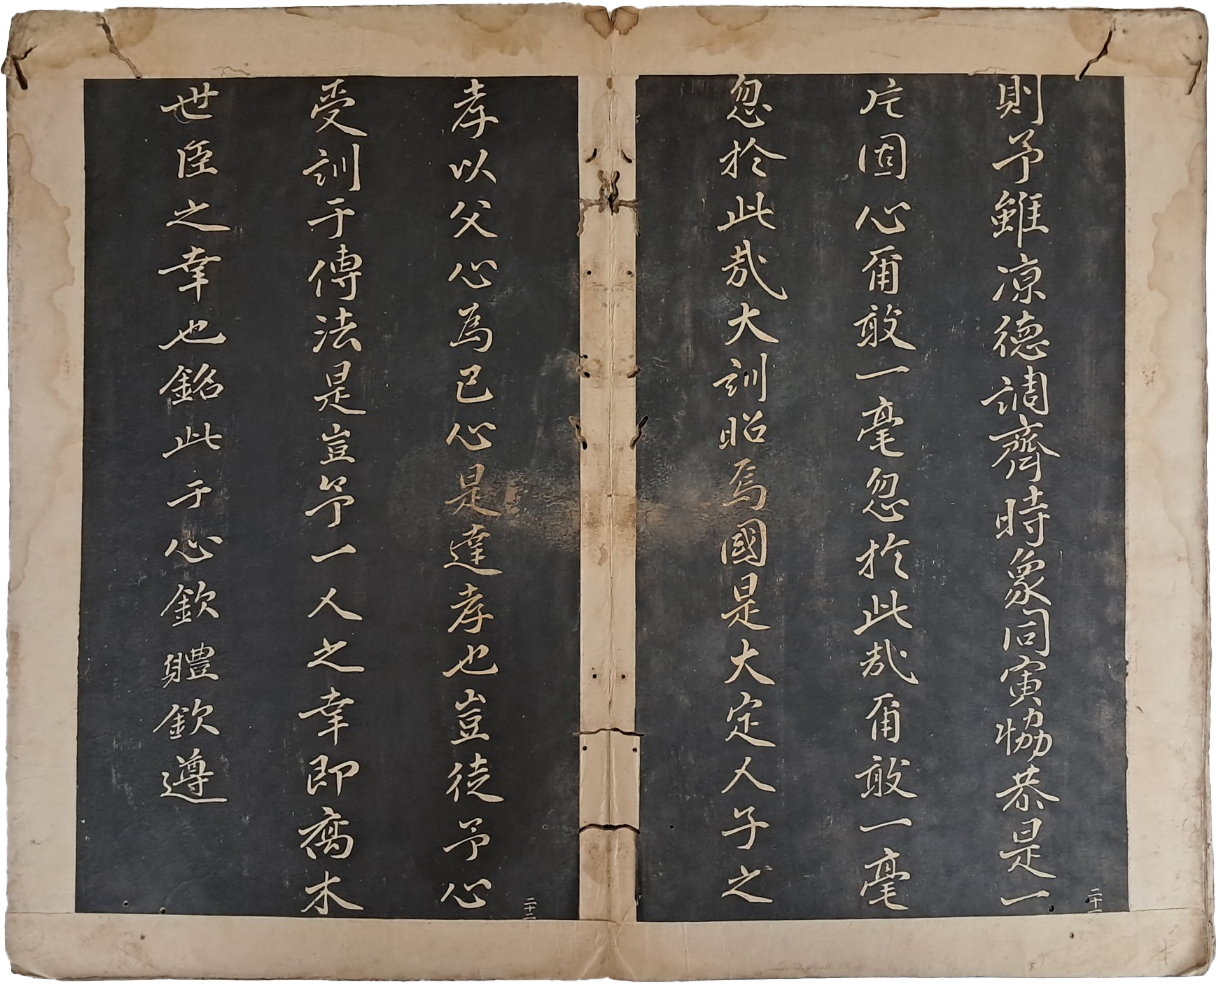 則予雖凉德調齊時象同寅恊恭是一
二十一
片固心甭敢一毫忽於此哉甭敢一毫
忽於此哉大訓昭焉國是大定人子之
孝以父心為己心是達孝也豈徒予心
二十二
受訓于傳法是豈予一人之幸即喬木
世臣之幸也銘此于心欽體欽遵